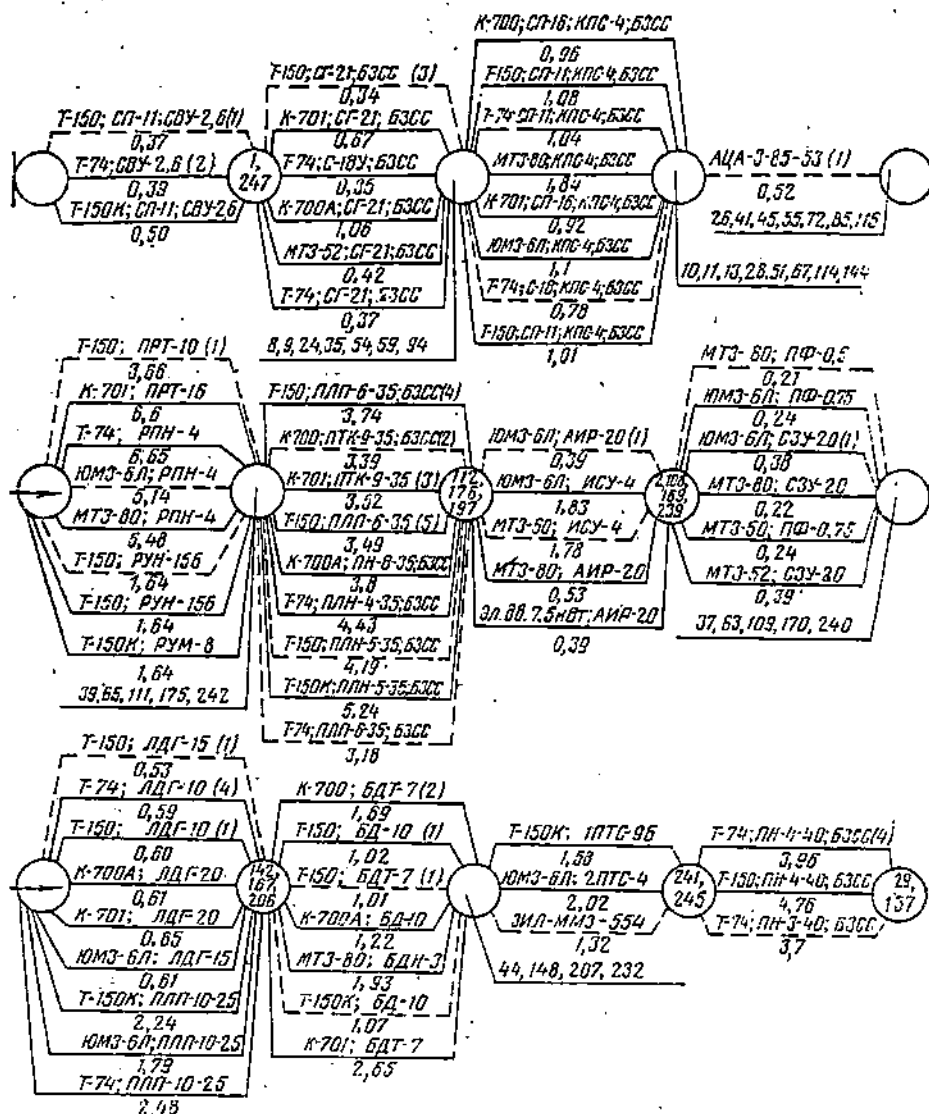 Т-150; СП-11; СВУ-2,6(1)
0,37
Т-74; СВУ-2,6 (2)
0,39
Т-150К; СП-11; СВУ-26
0,50
1,
247
Т-150; СГ-21; БЗСС (3)
0,34
К-701; СГ-21; БЗСС
0,67
Т-74; С-18У; БЗСС
0,35
К-700А; СГ-21; БЗСС
1,06
МТЗ-52; СГ-21; БЗСС
0,42
Т-74; СГ-21; БЗСС
0,37
8, 9, 24, 35, 54, 59, 94
К-700; СП-16; КПС-4; БЗСС
0,96
Т-150; СП-11; КПС-4; БЗСС
1,08
Т-74; СП-11; КПС-4; БЗСС
1,04
МТЗ-80; КПС-4; БЗСС
1,84
К-701; СП-16; КПС-4; БЗСС
0,92
ЮМЗ-6Л; КПС-4; БЗСС
1,1
Т-74; С-18; КПС-4; БЗСС
0,78
Т-150; СП-11; КПС-4; БЗСС
1,01
10, 11, 13, 28, 51, 67, 114, 144
АЦА-3-85-53 (1)
0,52
26, 41, 45, 55, 72, 85, 115
Т-150; ПРТ-10 (1)
3,66
К-701; ПРТ-16
6,6
Т-74; РПН-4
6,65
ЮМЗ-6Л; РПН-4
5,74
МТЗ-80; РПН-4
5,48
Т-150; РУН-15б
1,64
Т-150; РУН-15б
1,64
Т-150К; РУМ-8
1,64
39, 65, 111, 175, 242
Т-150; ПЛП-6-35; БЗСС(4)
3,74
К-700; ПТК-9-35; БЗСС(2)
3,39
К-701; ПТК-9-35 (3)
3,52
Т-150; ПЛП-6-35 (5)
3,49
К-700А; ПН-8-35; БЗСС
3,8
Т-74; ПЛН-4-35; БЗСС
4,43
Т-150; ПЛН-5-35; БЗСС
4,19
Т-150К; ПЛН-5-35; БЗСС
5,24
Т-74; ПЛП-6-35; БЗСС
3,18
112,
176,
197
ЮМЗ-6Л; АИР-20 (1)
0,39
ЮМЗ-6Л; ИСУ-4
1,83
МТЗ-50; ИСУ-4
1,78
МТЗ-80; АИР-20
0,53
Эл.дв. 7,5 кВт; АИР-20
0,39
2,108,
169,
239
МТЗ-80; ПФ-0,5
0,21
ЮМЗ-6Л; ПФ-0,75
0,24
ЮМЗ-6Л; СЗУ-20(1)
0,38
МТЗ-80; СЗУ-20
0,22
МТЗ-50; ПФ-0,75
0,24
МТЗ-52; СЗУ-20
0,39
37, 63, 109, 170, 240
Т-150; ЛДГ-15 (1)
0,53
Т-74; ЛДГ-10 (4)
0,59
Т-150; ЛДГ-10 (1)
0,60
К-700А; ЛДГ-20
0,61
К-701; ЛДГ-20
0,65
ЮМЗ-6Л; ЛДГ-15
0,61
Т-150К; ПЛП-10-25
2,24
ЮМЗ-6Л; ПЛП-10-25
1,79
Т-74; ПЛП-10-25
2,48
147,
167,
206
К-700; БДТ-7 (2)
1,69
Т-150; БД-10 (1)
1,02
Т-150; БДТ-7 (1)
1,01
К-700А; БД-10
1,22
МТЗ-80; БДН-3
1,93
Т-150К; БД-10
1,07
К-701; БДТ-7
2,65
44, 148, 207, 232
Т-150К; 1ПТС-9Б
1,58
ЮМЗ-6Л; 2ПТС-4
2,02
ЗИЛ-ММЗ-554
1,32
241,
245
Т-74; ПН-4-40; БЗСС(4)
3,96
Т-150; ПН-4-40; БЗСС
4,76
Т-74; ПН-3-40; БЗСС
3,7
29,
137